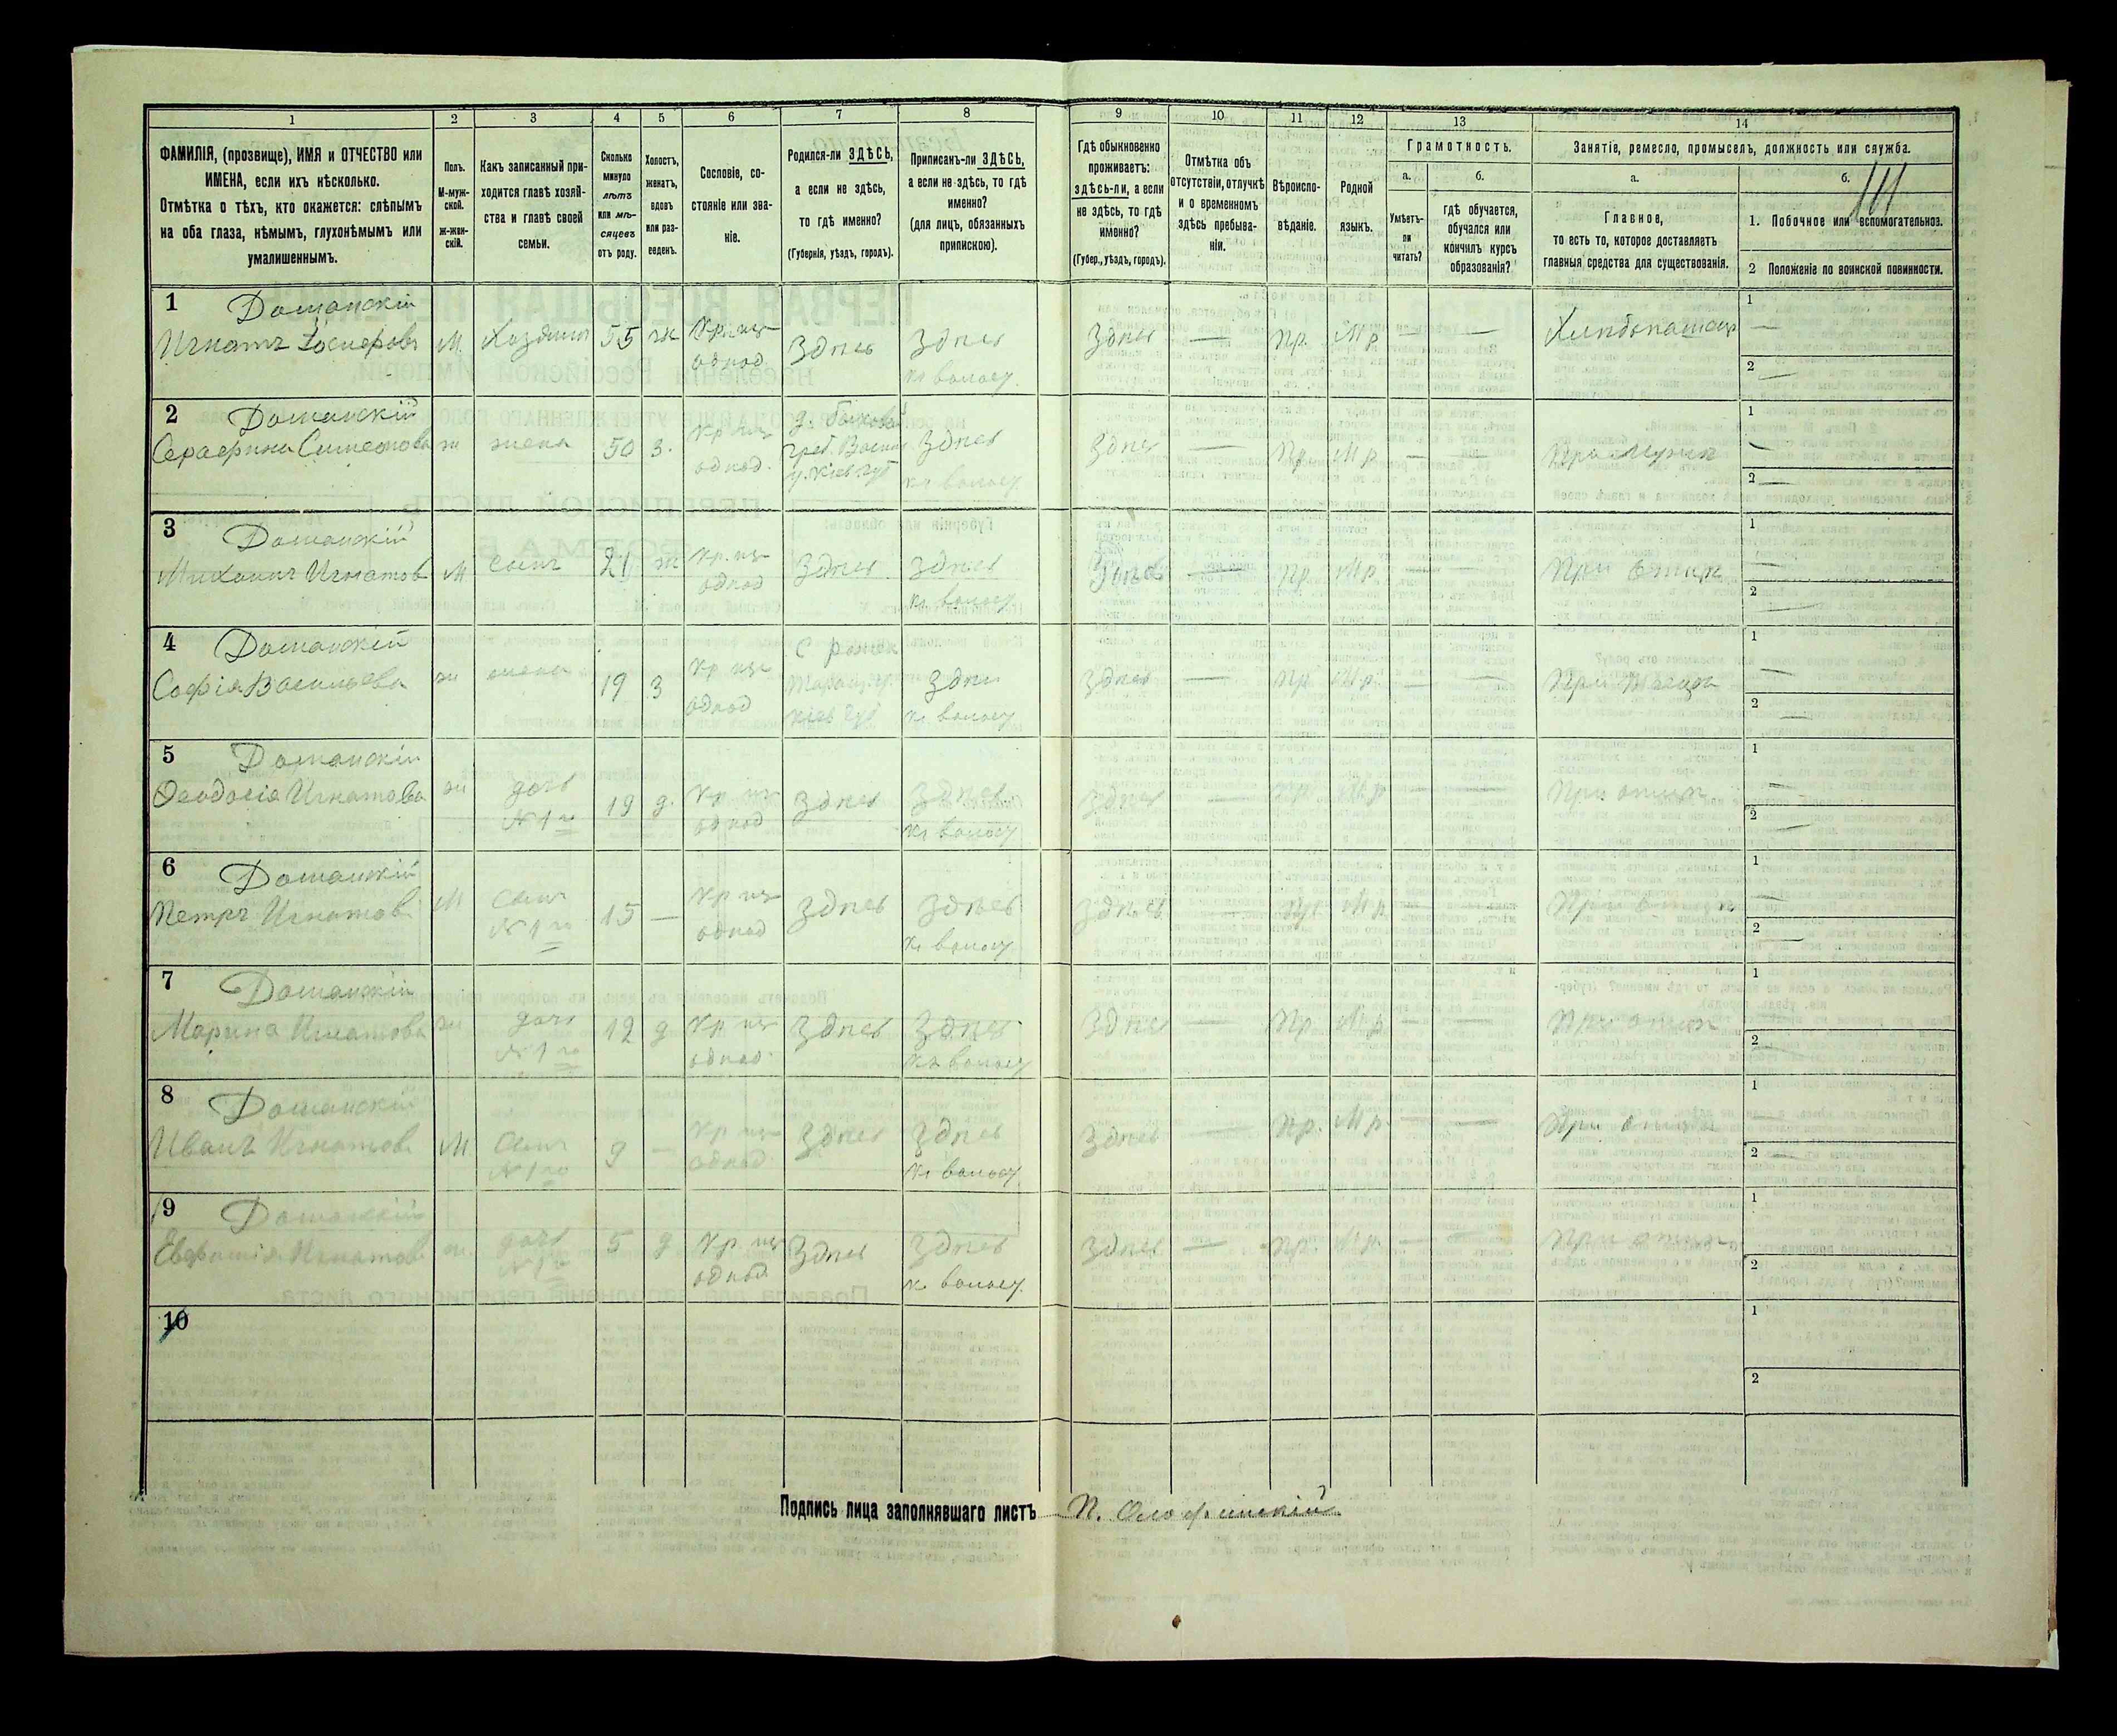 1 2 3 4 5 6 7 8 9 10 11 12 13 14
ФАМИЛІЯ, (прозвище), ИМЯ и ОТЧЕСТВО или
ИМЕНА, если ихъ нѣсколько.
Отмѣтка о тѣхъ, кто окажется: слѣпымъ
на оба глаза, нѣмымъ, глухонѣмымъ или
умалишеннымъ.
Полъ.
М-муж-
ской.
Ж-жен-
скій.
Какъ записанный при-
ходится главѣ хозяй-
ства и главѣ своей
семьи.
Сколько
минуло
лѣтъ
или мѣ-
сяцевъ
отъ роду.
Холостъ,
женатъ,
вдовъ
или раз-
веденъ.
Сословіе, со-
стояніе или зва-
ніе.
Родился-ли ЗДѢСЬ,
а если не здѣсь,
то гдѣ именно?
(Губернія, уѣздъ, городъ).
Приписанъ-ли ЗДѢСЬ,
а если не здѣсь, то гдѣ
именно?
(для лицъ, обязанныхъ
припискою).
Гдѣ обыкновенно
проживаетъ:
здѣсь-ли, а если
не здѣсь, то гдѣ
именно?
(Губер., уѣздъ, городъ).
Отмѣтка объ
отсутствіи, отлучкѣ
и о временномъ
здѣсь пребыва-
ніи.
Вѣроиспо-
вѣданіе.
Родной
языкъ.
Грамотность.
а.
Умѣетъ-
ли
читать?
б.
гдѣ обучается,
обучался или
кончилъ курсъ
образованія?
Занятіе, ремесло, промыселъ, должность или служба.
а.
Главное,
то есть то, которое доставляетъ
главныя средства для существованія.
б.
1. Побочное или вспомогательное.
2 Положеніе по воинской повинности.
1 Доманскій
Игнатъ М. Хозяинъ 55 ж Кр. изъ однод. Здѣсь Здѣсь къ волост. Здѣсь — Пр. Мр — — Хлѣбопашецъ
1 —
2 —
2 Доманскій
Серафима Симеонова ж жена 50 з. Кр изъ однод. Здѣсь къ волост Здѣсь — Пр Мр — — При мужѣ
1 —
2 —
3 Доманскій
Михаилъ Игнатов М сынъ 21 ж Кр. изъ однод Здѣсь Здѣсь къ волост Здѣсь — Пр. Мр. — — При отцѣ
1 —
2 —
4 Доманскій
Софія Васильева ж жена 19 з Кр изъ однод Здѣсь къ волост Здѣсь — Пр Мр. — — При
1 —
2 —
5 Доманскій
Ѳеодосія Игнатова ж дочь № 1го 19 д. Кр изъ однод Здѣсь Здѣсь къ волост Здѣсь — Пр. Мр — — При отцѣ
1 —
2 —
6 Доманскій
Петръ Игнатов М Сынъ № 1го 15 — Кр изъ однод Здѣсь Здѣсь къ волост Здѣсь — Пр Мр — — При отцѣ
1 —
2 —
7 Доманскій
Марина Игнатова ж дочь № 1го 12 д Кр изъ однод. Здѣсь Здѣсь къ волост Здѣсь — Пр. Мр — — При отцѣ
1
2 —
8 Доманскій
Иванъ Игнатов. М Сынъ № 1го 9 — Кр изъ однод Здѣсь Здѣсь къ волост Здѣсь — Пр. Мр. — — При отцѣ
1
2 —
9 Доманскій
Игнатов ж. дочь № 1го 5 д Кр изъ однод. Здѣсь Здѣсь къ волост. Здѣсь — Пр. Мр. — — При отцѣ
1
2
10
1
2
Подпись лица заполнявшаго листъ П.